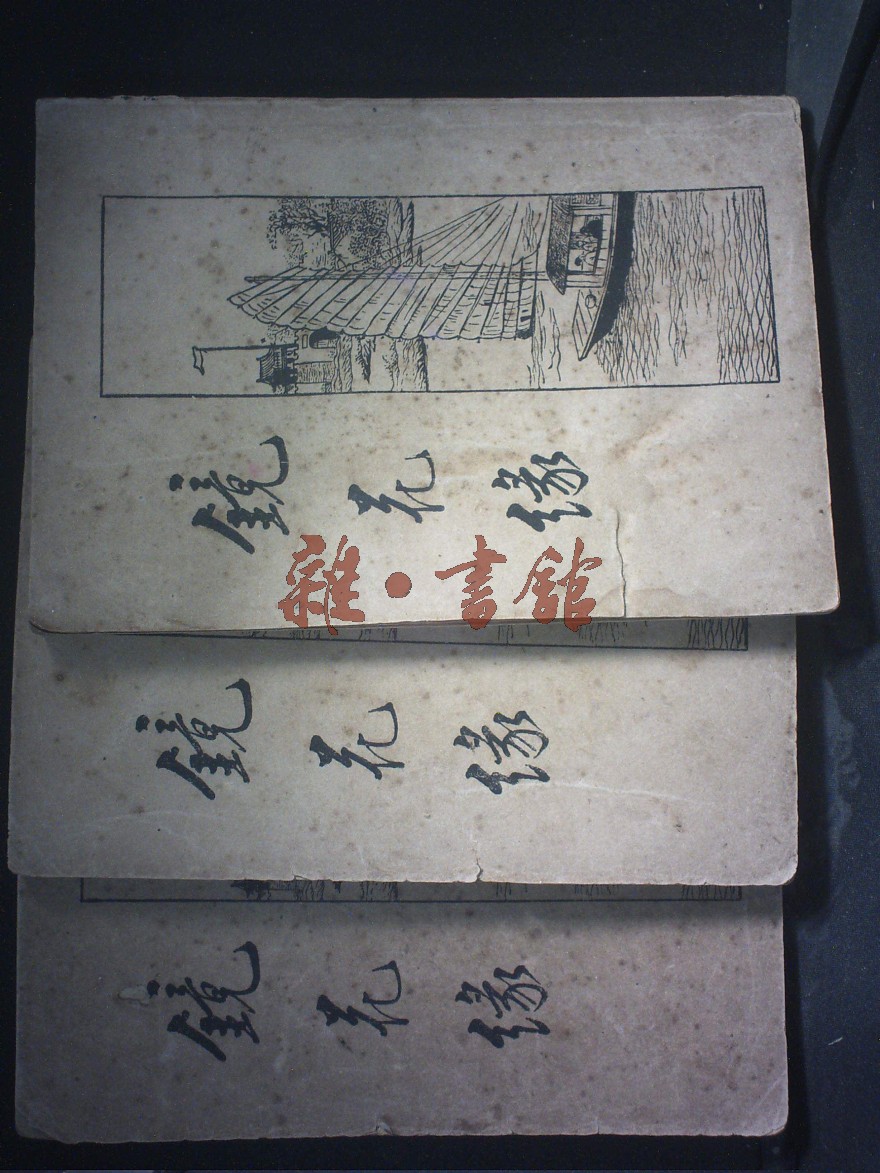 鏡花緣
雜·書館
鏡花緣
鏡花緣